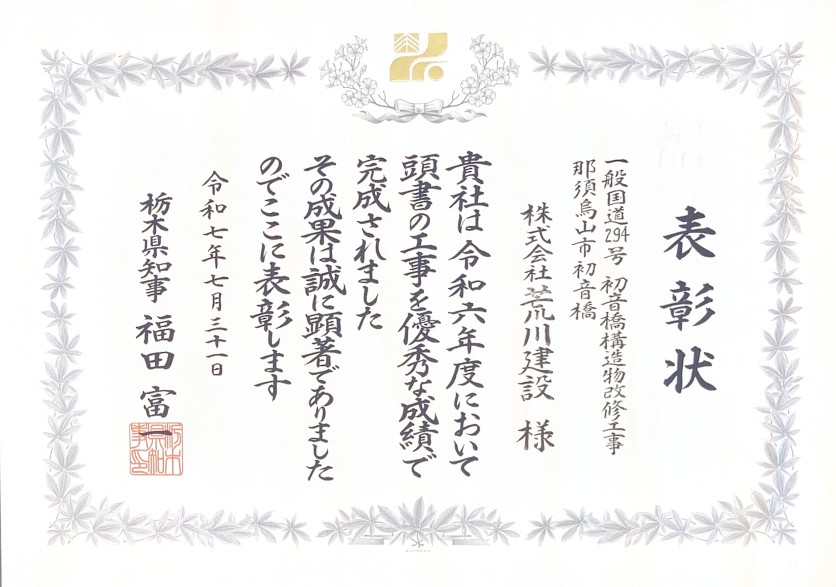 表彰状
一般国道294号 初音橋構造物改修工事
那須烏山市初音橋
株式会社荒川建設 様
貴社は令和六年度において
頭書の工事を優秀な成績で
完成されました
その成果は誠に顕著でありました
のでここに表彰します
令和七年七月三十一日
栃木県知事 福田富一
栃木県知事印